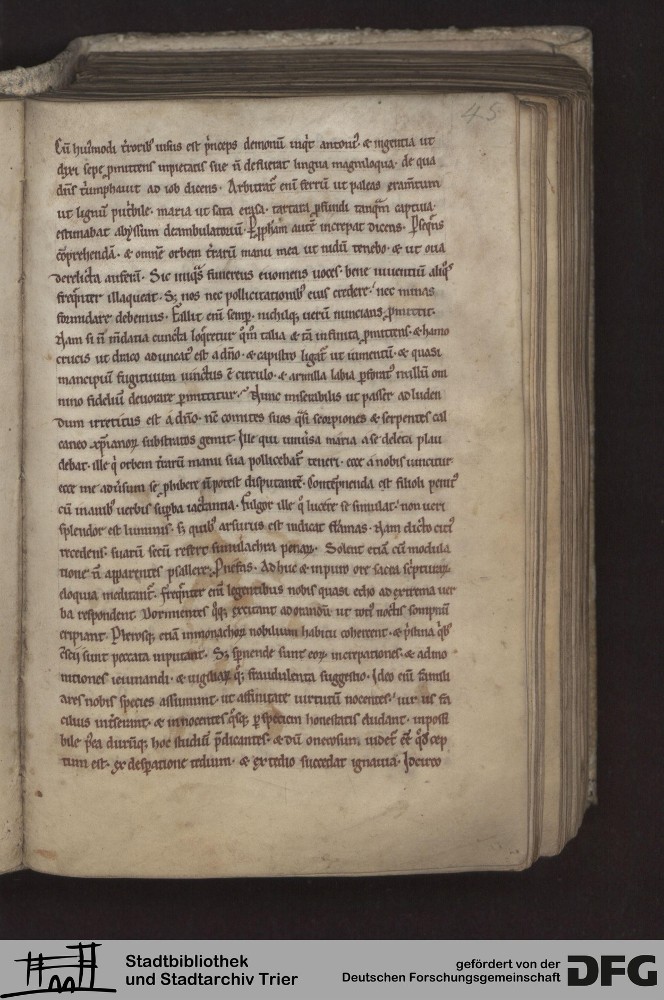 45
Cū hui9modi t̄rorib9 uisus est p̄nceps demonū inq̇t antoni9. & ingentia ut
dixi sepe ꝓmittens inpietatis sue n̄ defuerat lingua magniloqua. de qua
dn̄s triumphauit ad iob dicens. Arbitrat̄ eni ferrū ut paleas eram̄tum
ut lignū putˀbile. maria ut sata erasa. tartara ꝓfundi tanqm̄ captiua.
estimabat abyssum deambulatoriū. P pph̄am autē increpat dicens. Pseq̄ns
cōprehendā. & omnē orbem t̄rarū manu mea ut nidū tenebo. & ut oua
derelicta auferā. Sic iniq̇s funereus euomens uoces. bene uiuentiū aliq̇s
freq̄nter illaqueat. Sꝫ nos nec pollicitationib9 eius credere. nec minas
formidare debemus. Fallit eni semp. nichilqꝫ uerū nuncians ꝓmittit.
Nam si n̄ m̄dacia cuncta loq̄retur qm̄ talia & tā infinita ꝓmittens. & hamo
crucis ut draco aduncat9 est a dn̄o. & capistro ligat9 ut iumentū. & quasi
mancipiū fugitiuum uinctus ē circulo. & armilla labia ꝑforat9 nullū om
nino fideliū deuorare ꝑmittitur. Nunc miserabilis ut passer ad luden
dum irretitus est a dn̄o. nc̄ comites suos q̇si scorpiones & serpentes cal
caneo xp̄ianoꝝ substratos gemit. Ille qui uniuˀsa maria a se deleta plau
debat. ille q̇ orbem t̄rarū manu sua pollicebat̄ teneri. ecce a nobis uincitur
ecce me aduˀsum se ꝓhibere n̄ potest disputantē. Contēpnenda est filioli penit9
cū inanib9 uerbis supˀba iactantia. Fulgor ille q̇ lucere se simulat. non ueri
splendor est luminis. sꝫ quib9 arsurus est indicat flāmas. Nam dicto citi9
recedens. suarū secū refert simulachra penaꝝ. Solent etiā cū modula
tione n̄ apparentes psallere. Pnefas. Ad hec & inpuro ore sacra scripturaꝝ
eloquia meditant̄. freq̄nter eni legentibus nobis quasi echo ad extrema uer
ba respondent. Dormientes q̇qꝫ excitant ad orandū ut toti9 noctis sompnū
eripiant. Plerosqꝫ etiā in monachoꝝ nobilium habitu cohercent. & p̄stina q̇b9
c̄scii sunt peccata inputant. Sꝫ spˀnende sunt eoꝝ increpationes. & admo
nitiones ieiunandi. & uigiliaꝝ q̇qꝫ fraudulenta suggestio. Ideo eni familı
ares nobis species assumunt. ut affinitate uirtutū nocentes. uir us fa
cilius inserant. & innocentes q̇sqꝫ ꝑ speciem honestatis eludant. inpossi
bile p̄ea durūqꝫ hoc studiū p̄dicantes. & dū onerosum uidet̄ eē qd cep
tum est. ex desꝑatione tedium. & ex tedio succedat ignauia. Idcirco
Stadtbibliothek
und Stadtarchiv Trier
gefördert von der
Deutschen Forschungsgemeinschaft
DFG